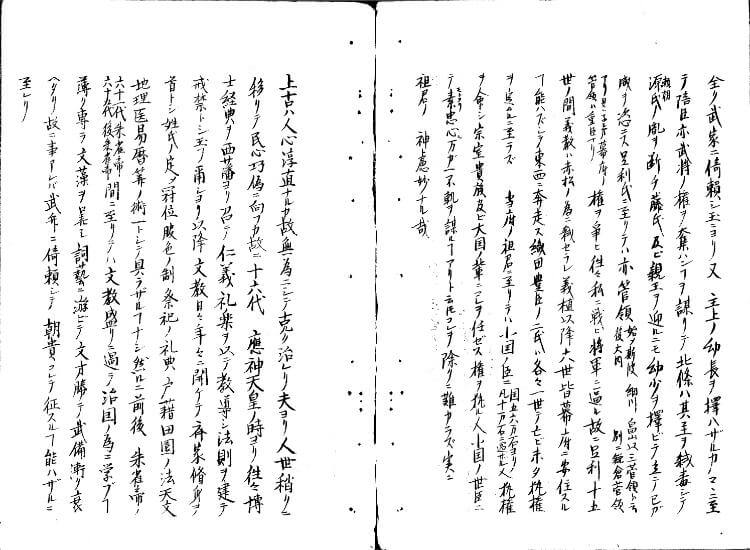 全ク武家ニ倚頼シ玉ヨリ又 主上ノ幼長ヲ擇ハザルカノマニ至
テ陪臣亦武将ノ権ヲ奪ハンヿヲ謀リテ北條ハ其主ヲ弑毒シテ
源氏頼朝ノ胤ヲ断チ藤氏及ビ親王ヲ迎ルニモ幼少ヲ擇ビテ立テ己ガ
威ヲ恣ニス足利氏ニ至リテハ亦管領 始メ斯波 細川 畠山以三管領トテ 後大内 別ニ鎌倉管領
管領ハ重臣ナリ 幕府ノ権ヲ争ヒ往々私ニ戦ヒ将軍ニ逼ル故ニ足利十五
世ノ間義教ハ赤松ノ為ニ弑セラレ義植以降六世皆幕府ニ安住スル
ヿ能ハズシテ東西ニ奔走ス織田豊臣ノ二氏ハ各々一世ニテ亡ビホタ執権
ヲ具ルニ至ラズ 当府ノ祖君ニ至リテハ小国ノ臣 国五六万石ヨリ 凡十万石ニ過ギル人 執権
ヲ命シ宗室貴族及ビ大国ノ輩ニコレヲ任セス権ヲ執ル人小国ノ世臣ニ
テ素忠心万ガ一不軌ヲ謀ルヿアリト云ドモコレヲ除クニ難カラズ実ニ
祖君ノ 神慮妙ナル哉
上古ハ人心淳直ナルカ故無為ニシテ克ク治レリ夫ヨリ人世稍クニ
移リテ民心巧偽ニ向フカ故ニ十六代 應神天皇ノ時ヨリ往々博
士経典ヲ西蕃ヨリ召シテ仁義礼楽ヲ以テ教導シ法則ヲ建テ
戒禁トシ玉フ爾シヨリ以降文教日々年々ニ開ケテ斉家脩身ヲ
首トシ姓氏ノ尺冠位服色ノ制祭祀ノ礼典 藉田園ノ法天文
地理医易暦筭ノ術一トシテ具ラザルヿナシ然ルニ前後 朱雀帝ノ
六十一代朱雀帝 六十九代後朱雀帝 間ニ至リテハ文教盛リニ過テ治国ノ為ニ学ブヿ
薄ク専ラ文藻ヲ巣トシ詞藝ニ遊ビテ文才勝テ武備漸ク衰
ヘタリ故ニ事アレバ武弁ニ倚頼シテ 朝貴コレヲ征スルヿ能ハザルニ
至レリ